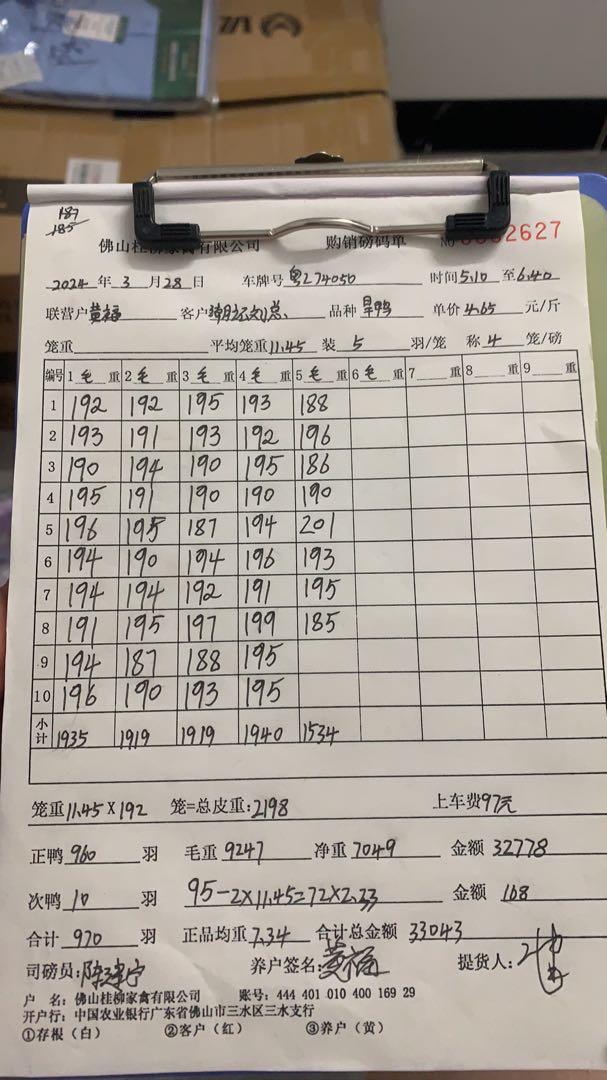 187
185
佛山桂柳家禽有限公司 购销磅码单 No 0002627
2024年3月28日 车牌号 粤Z74050 时间5.10至6.40
联营户 黄福 客户 总. 品种 旱鸭 单价4.65元/斤
笼重 平均笼重11.45 装5羽/笼 称4笼/磅
编号 1毛重 2毛重 3毛重 4毛重 5毛重 6毛重 7重 8重 9重
1 192 192 195 193 188
2 193 191 193 192 196
3 190 194 190 195 186
4 195 191 190 190 190
5 196 195 187 194 201
6 194 190 194 196 193
7 194 194 192 191 195
8 191 195 197 199 185
9 194 187 188 195
10 196 190 193 195
小计 1935 1919 1919 1940 1534
笼重11.45X192笼=总皮重:2198 上车费97元
正鸭960羽 毛重9247 净重7049 金额32778
次鸭10羽 95-2X11.45=72X2.33 金额168
合计970羽 正品均重7.34 合计总金额33043
司磅员: 养户签名:黄福 提货人:
户 名:佛山桂柳家禽有限公司 账号:444 401 010 400 169 29
开户行:中国农业银行广东省佛山市三水区三水支行
①存根(白) ②客户(红) ③养户(黄)